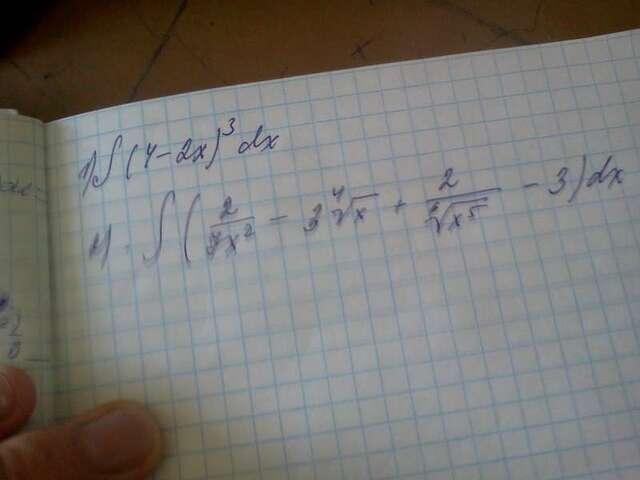 1) ∫ (4 - 2x)³ dx
∫ ( 2/7x² - 3 ⁴√x + 2/√x⁵ - 3 ) dx